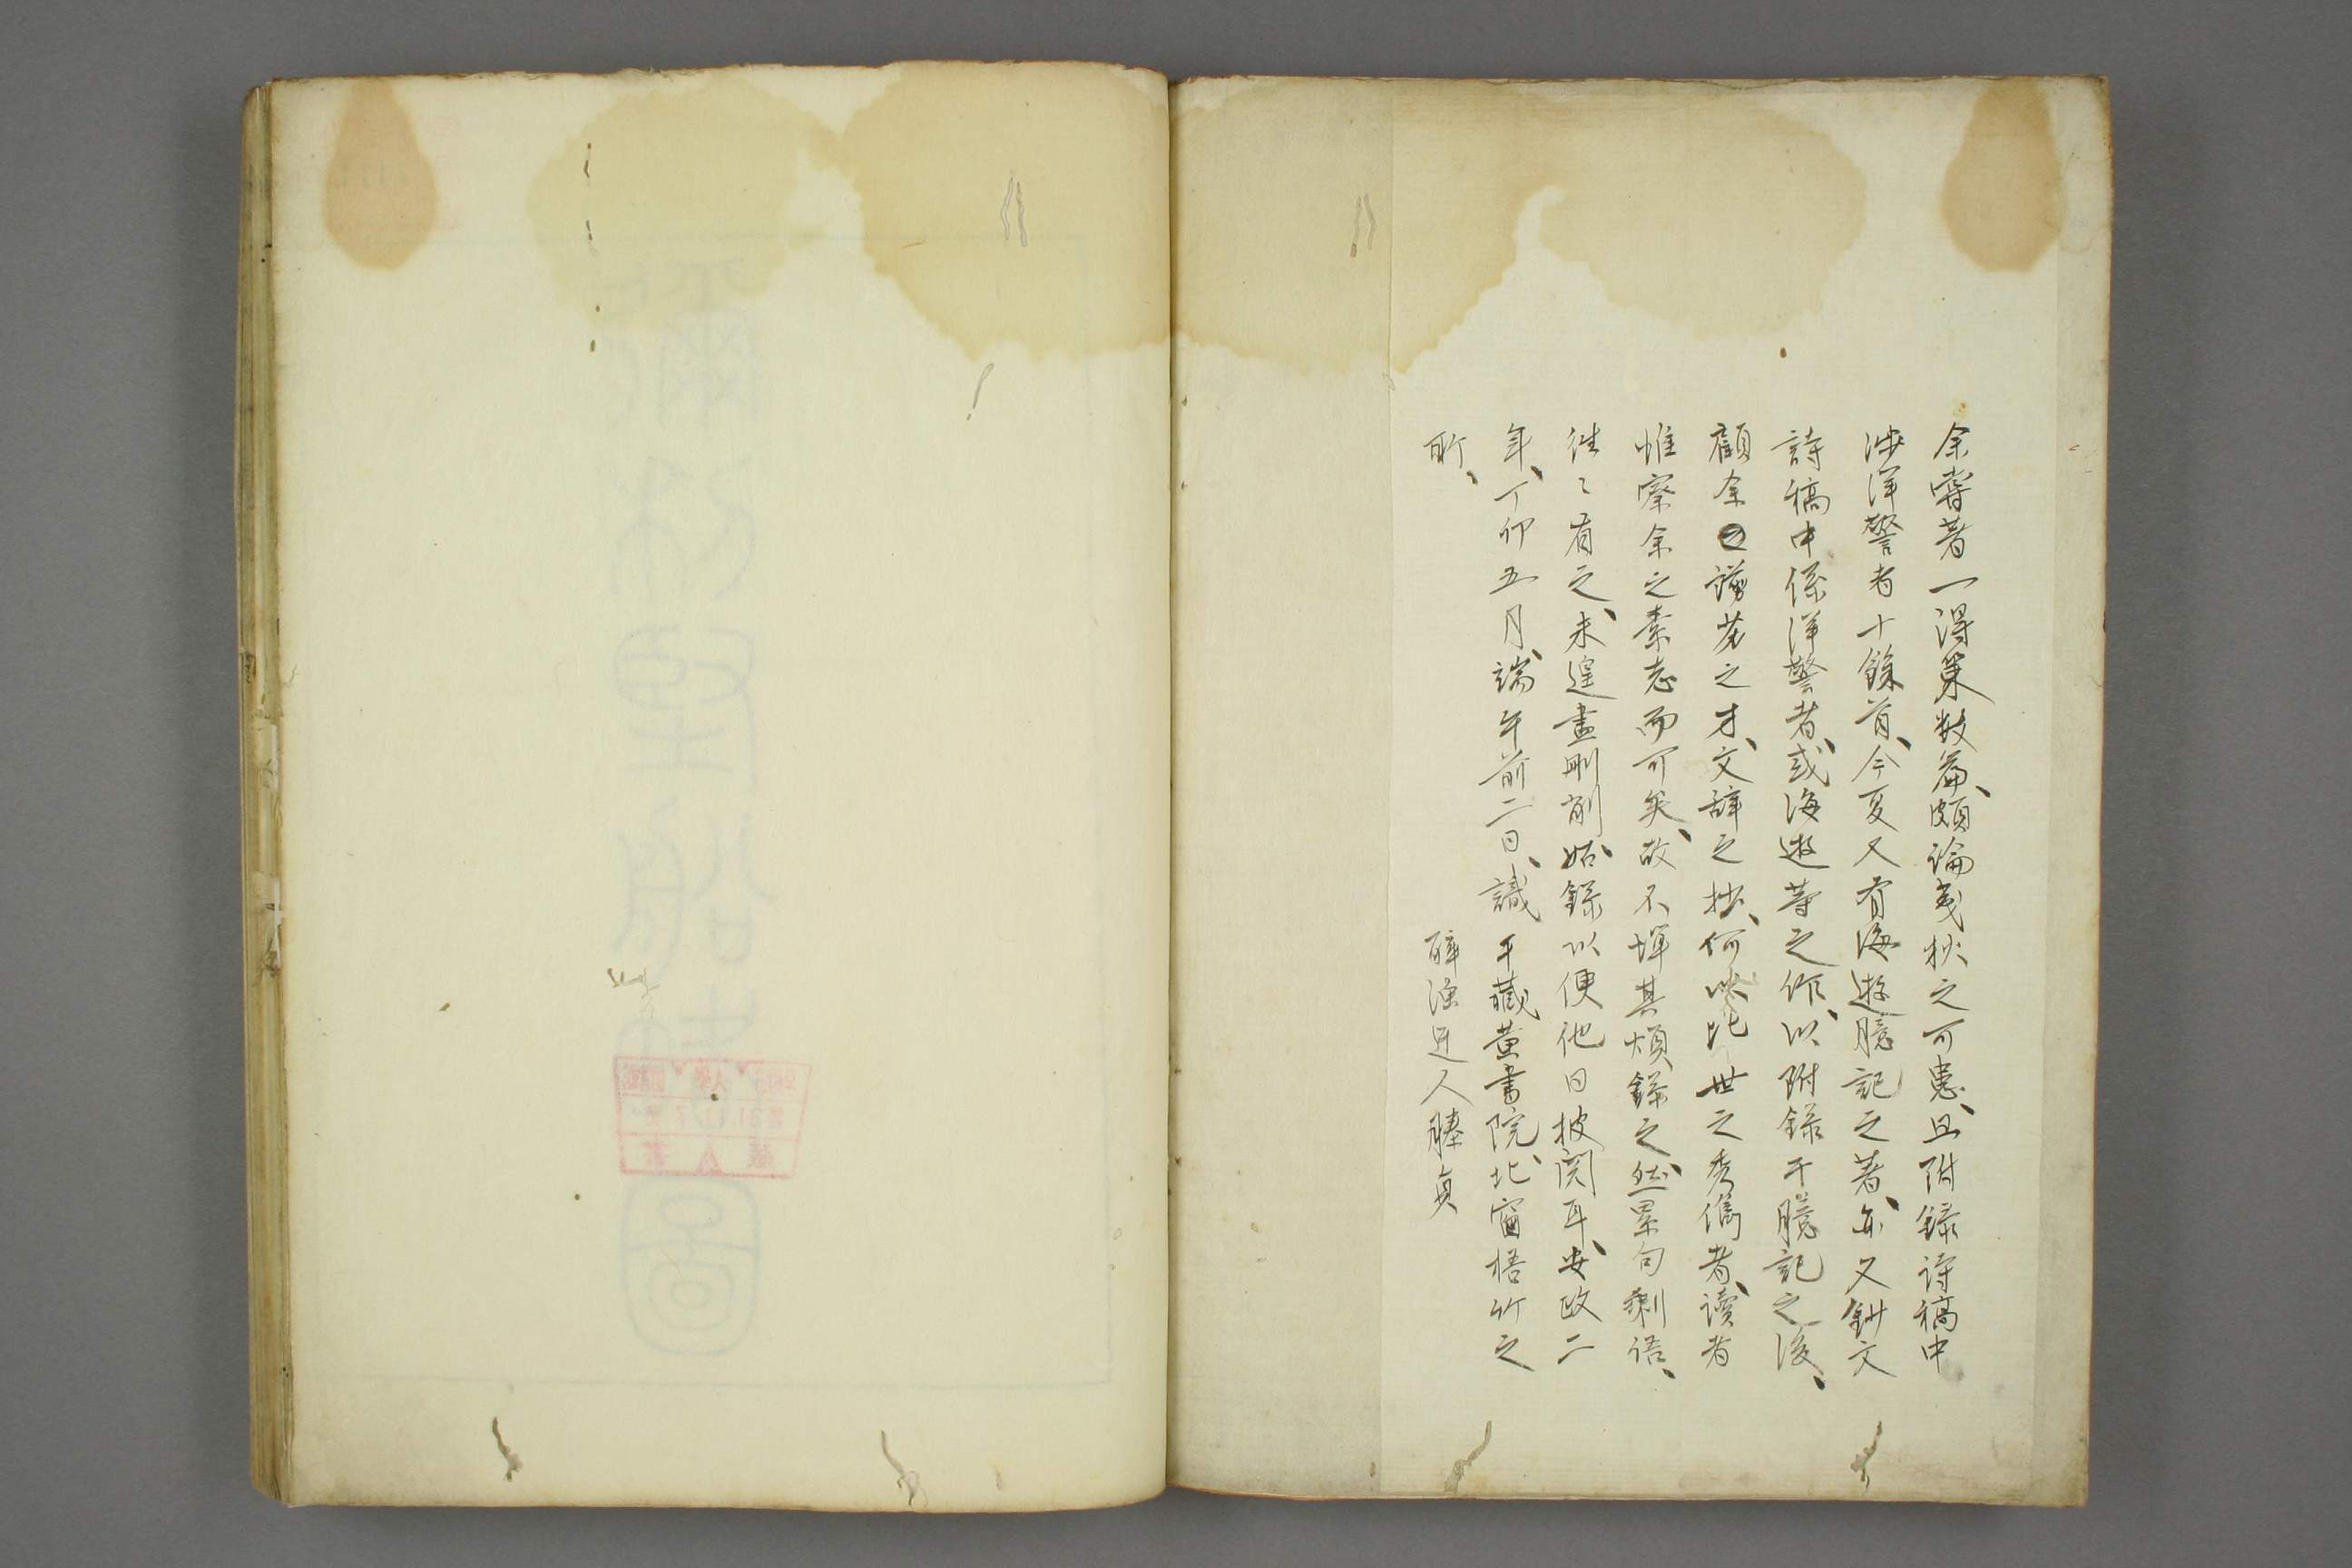 余嘗著一得策数篇、頗論夷狄之可患、且附錄詩稿中
涉洋警者十餘首、今夏又有海遊臆記之著、亦又鈔文
詩稿中係洋警者、或海遊等之作、以附錄于臆記之後、
顧余之謭劣之才、文辞之拙、何以比世之秀儁者、讀者
惟察余之素志而可矣、故不憚其煩錄之、然累句剩語、
往々有之、未遑盡刪削、姑錄以便他日披閲耳、安政二
年、丁卯五月、端午前二日、識于藏黄書院、北窗梧竹之
所、
醉漁逸人
彌利堅船
圖